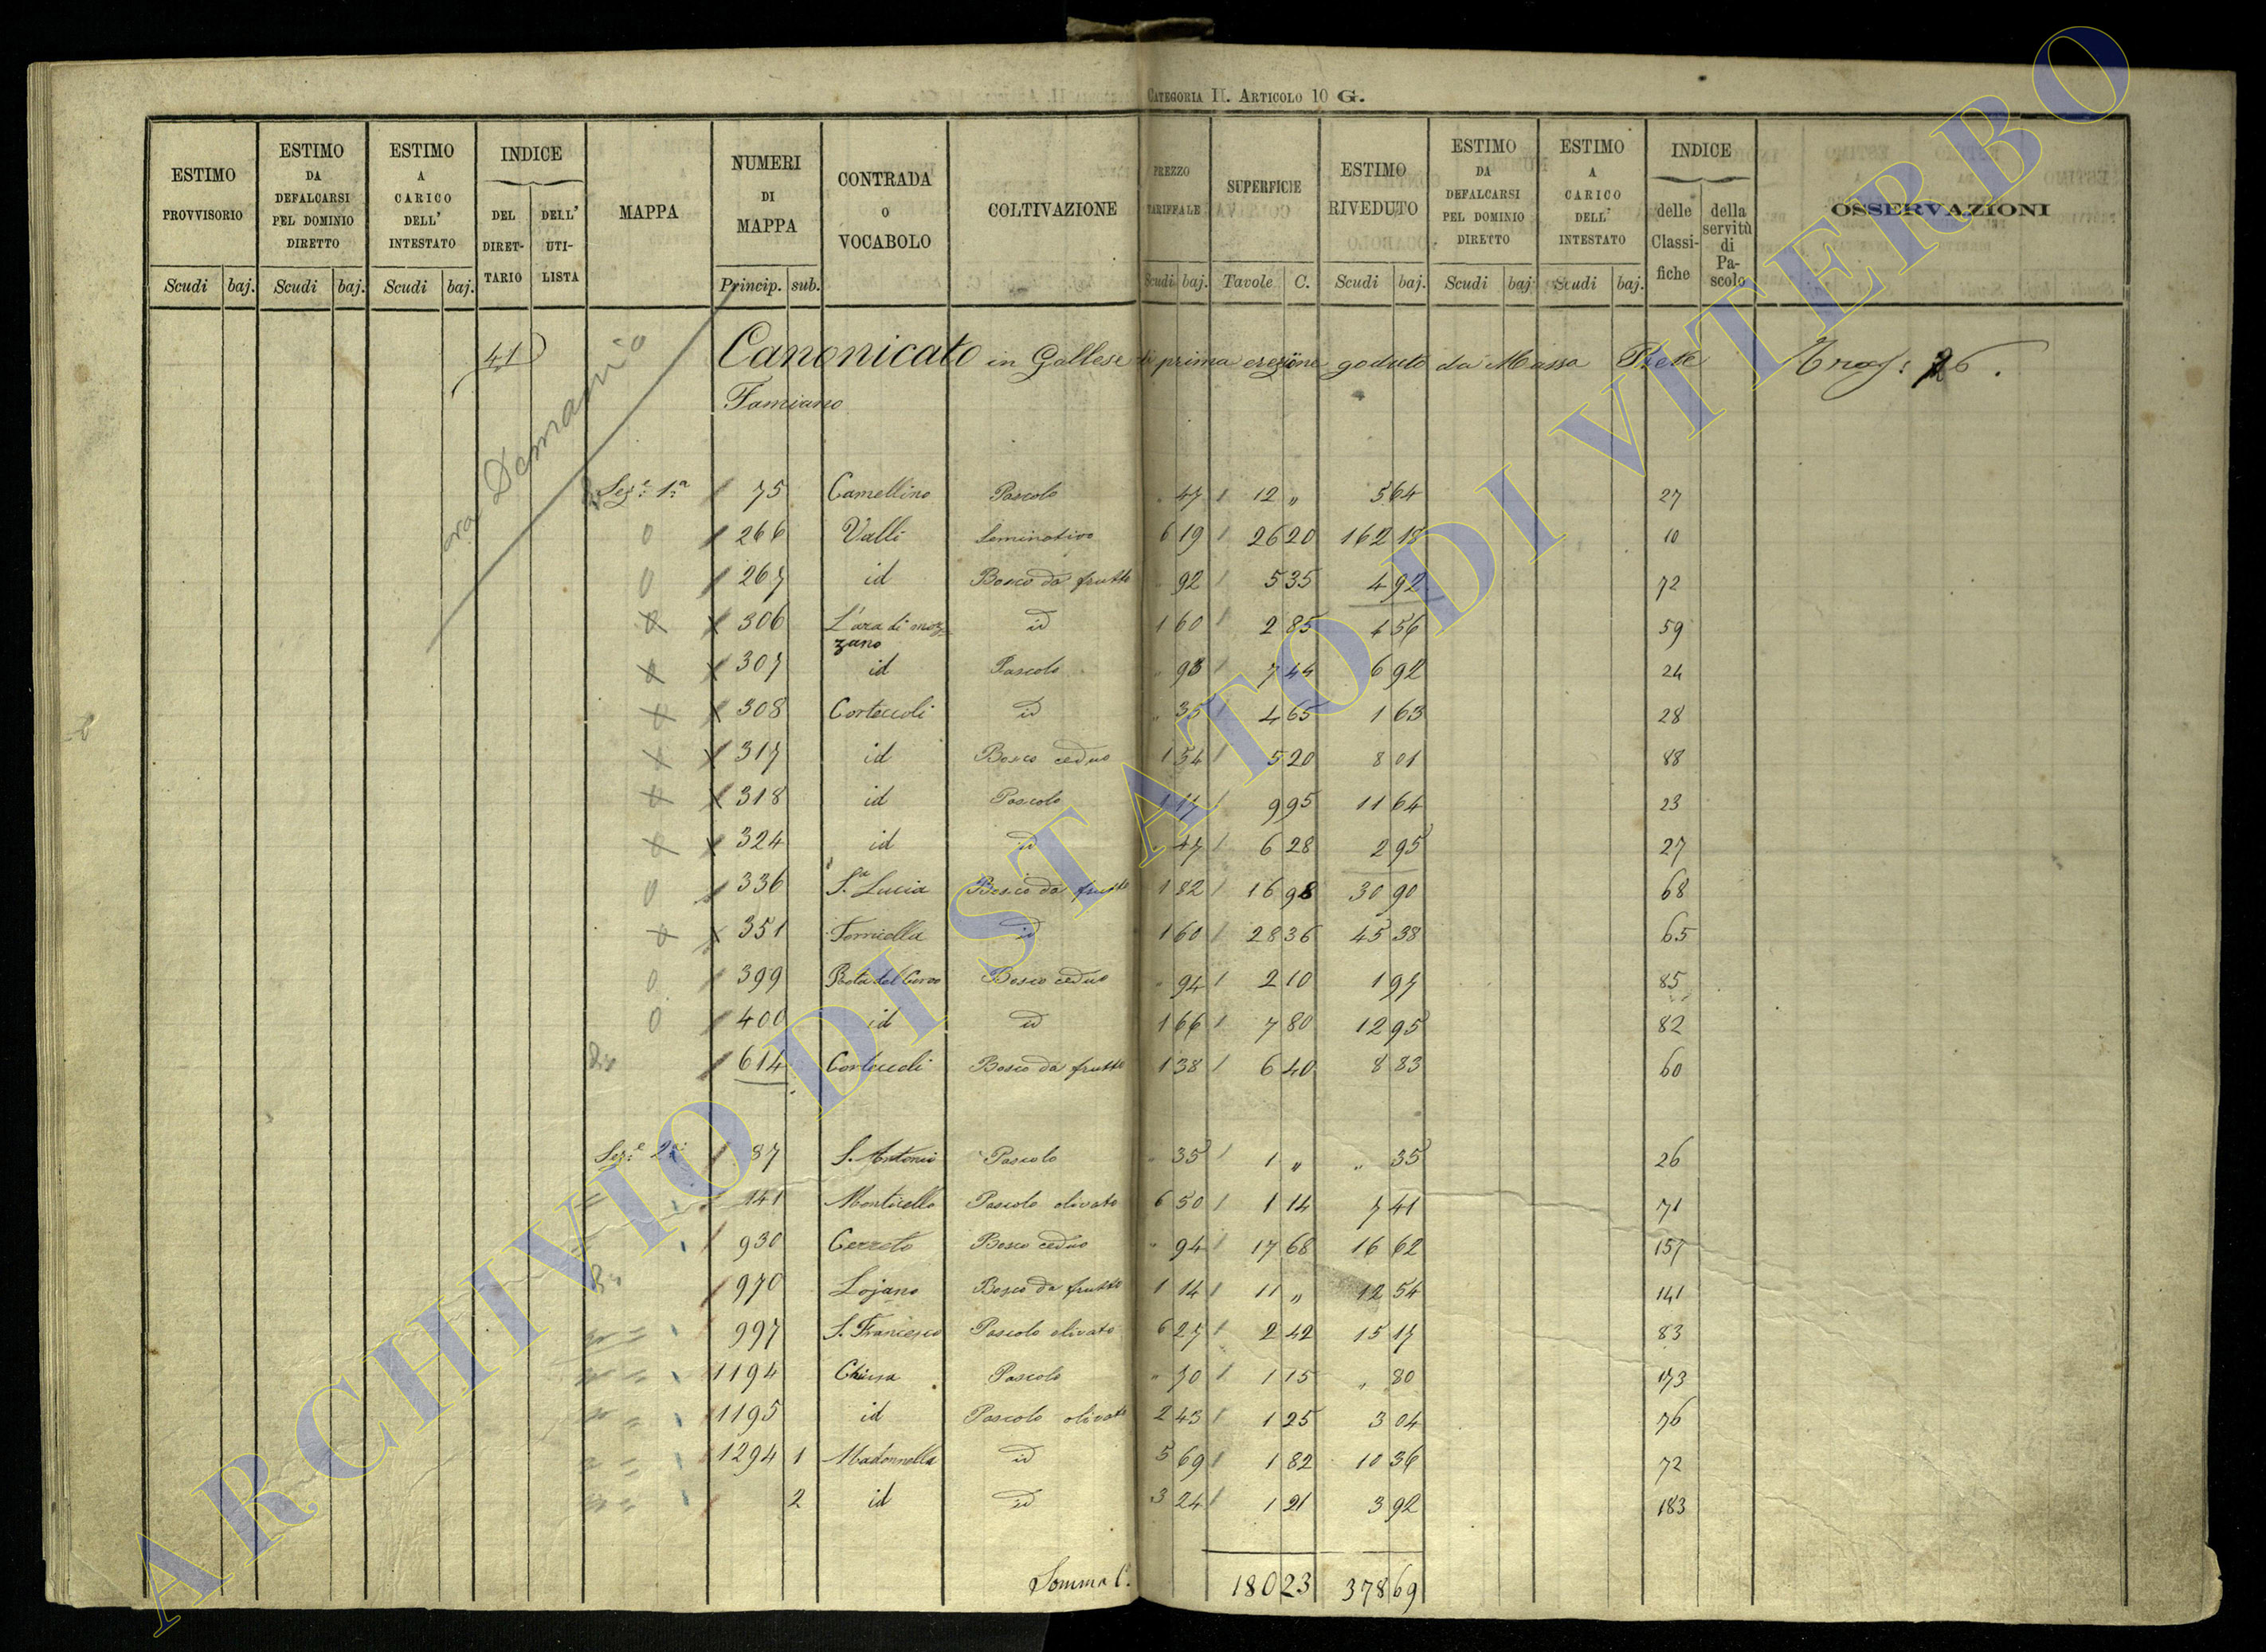 CATEGORIA II. ARTICOLO 10 G.
ESTIMO PROVVISORIO Scudi baj. ESTIMO DA DEFALCARSI PEL DOMINIO DIRETTO Scudi baj. ESTIMO A CARICO DELL' INTESTATO Scudi baj. INDICE DEL DIRETTARIO DELL' UTILISTA MAPPA NUMERI DI MAPPA Princip. sub. CONTRADA O VOCABOLO COLTIVAZIONE PREZZO TARIFFALE Scudi baj. SUPERFICIE Tavole C. ESTIMO RIVEDUTO Scudi baj. ESTIMO DA DEFALCARSI PEL DOMINIO DIRETTO Scudi baj ESTIMO A CARICO DELL' INTESTATO Scudi baj. INDICE delle Classifiche della servitù di Pascolo OSSERVAZIONI
41 Canonicato in Gallese di prima erezione goduto da Massa Prete Trasf: 26.
Famiano
ora Demanio
Sez.e 1.a 75 Camellino Pascolo " 47 12 " 5 64 27
0 266 Valli Seminativo 6 19 26 20 162 18 10
0 267 id Bosco da frutto " 92 5 35 4 92 72
306 L'ara di moz- id 1 60 2 85 4 56 59
zano
307 id Pascolo " 93 7 44 6 92 24
308 Corteccoli id " 35 4 65 1 63 28
317 id Bosco ceduo 1 54 5 20 8 01 88
318 id Pascolo 1 17 9 95 11 64 23
324 id id " 47 6 28 2 95 27
0 336 S.a Lucia Bosco da frutto 1 82 16 98 30 90 68
351 Torricella id 1 60 28 36 45 38 65
0 399 Rota del Corvo Bosco ceduo " 94 2 10 1 97 85
0 400 id id 1 66 7 80 12 95 82
614 Corteccoli Bosco da frutto 1 38 6 40 8 83 60
Sez.e 2.a 87 S. Antonio Pascolo " 35 1 " " 35 26
141 Monticello Pascolo olivato 6 50 1 14 7 41 71
930 Cerreto Bosco ceduo " 94 17 68 16 62 157
970 Lojano Bosco da frutto 1 14 11 " 12 54 141
997 S. Francesco Pascolo olivato 6 27 2 42 15 17 83
1194 Chiusa Pascolo " 70 1 15 " 80 173
1195 id Pascolo olivato 2 43 1 25 3 04 76
1294 1 Madonnella id 5 69 1 82 10 36 72
2 id id 3 24 1 21 3 92 183
Somma 180 23 378 69
ARCHIVIO DI STATO DI VITERBO